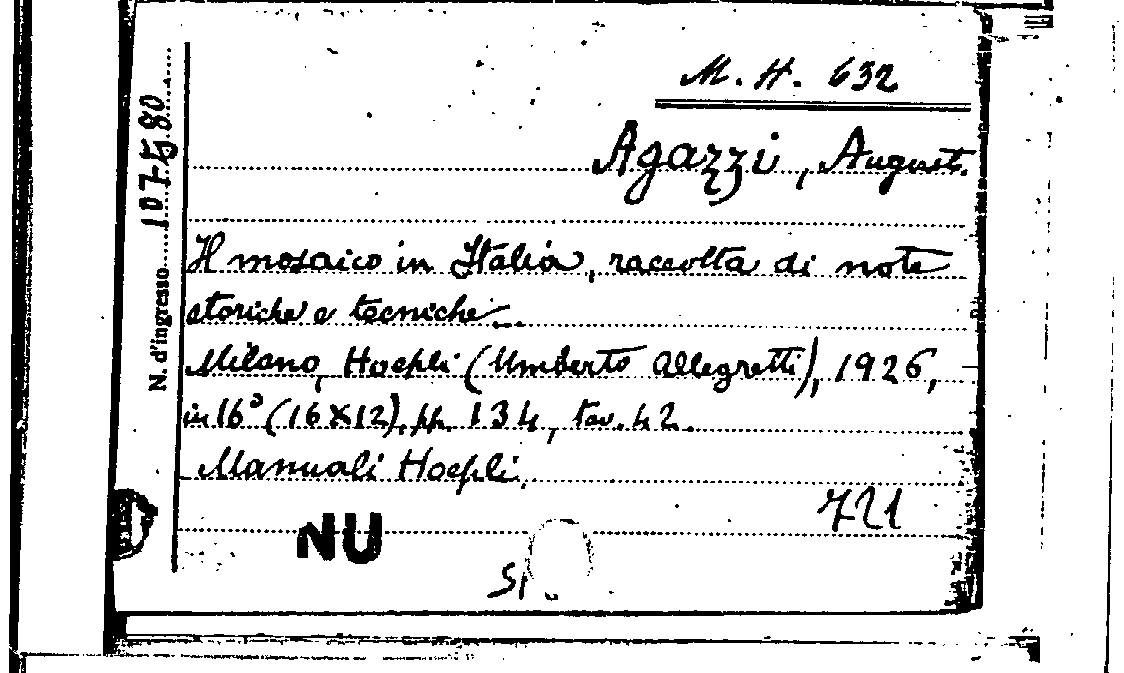 M. H. 632
Agazzi, August.
Il mosaico in Italia, raccolta di note
storiche e tecniche...
Milano, Hoepli (Umberto Allegretti), 1926,
in 16° (16X12), pp. 134, tav. 42.
Manuali Hoepli.
721
NU
N. d'ingresso 107580